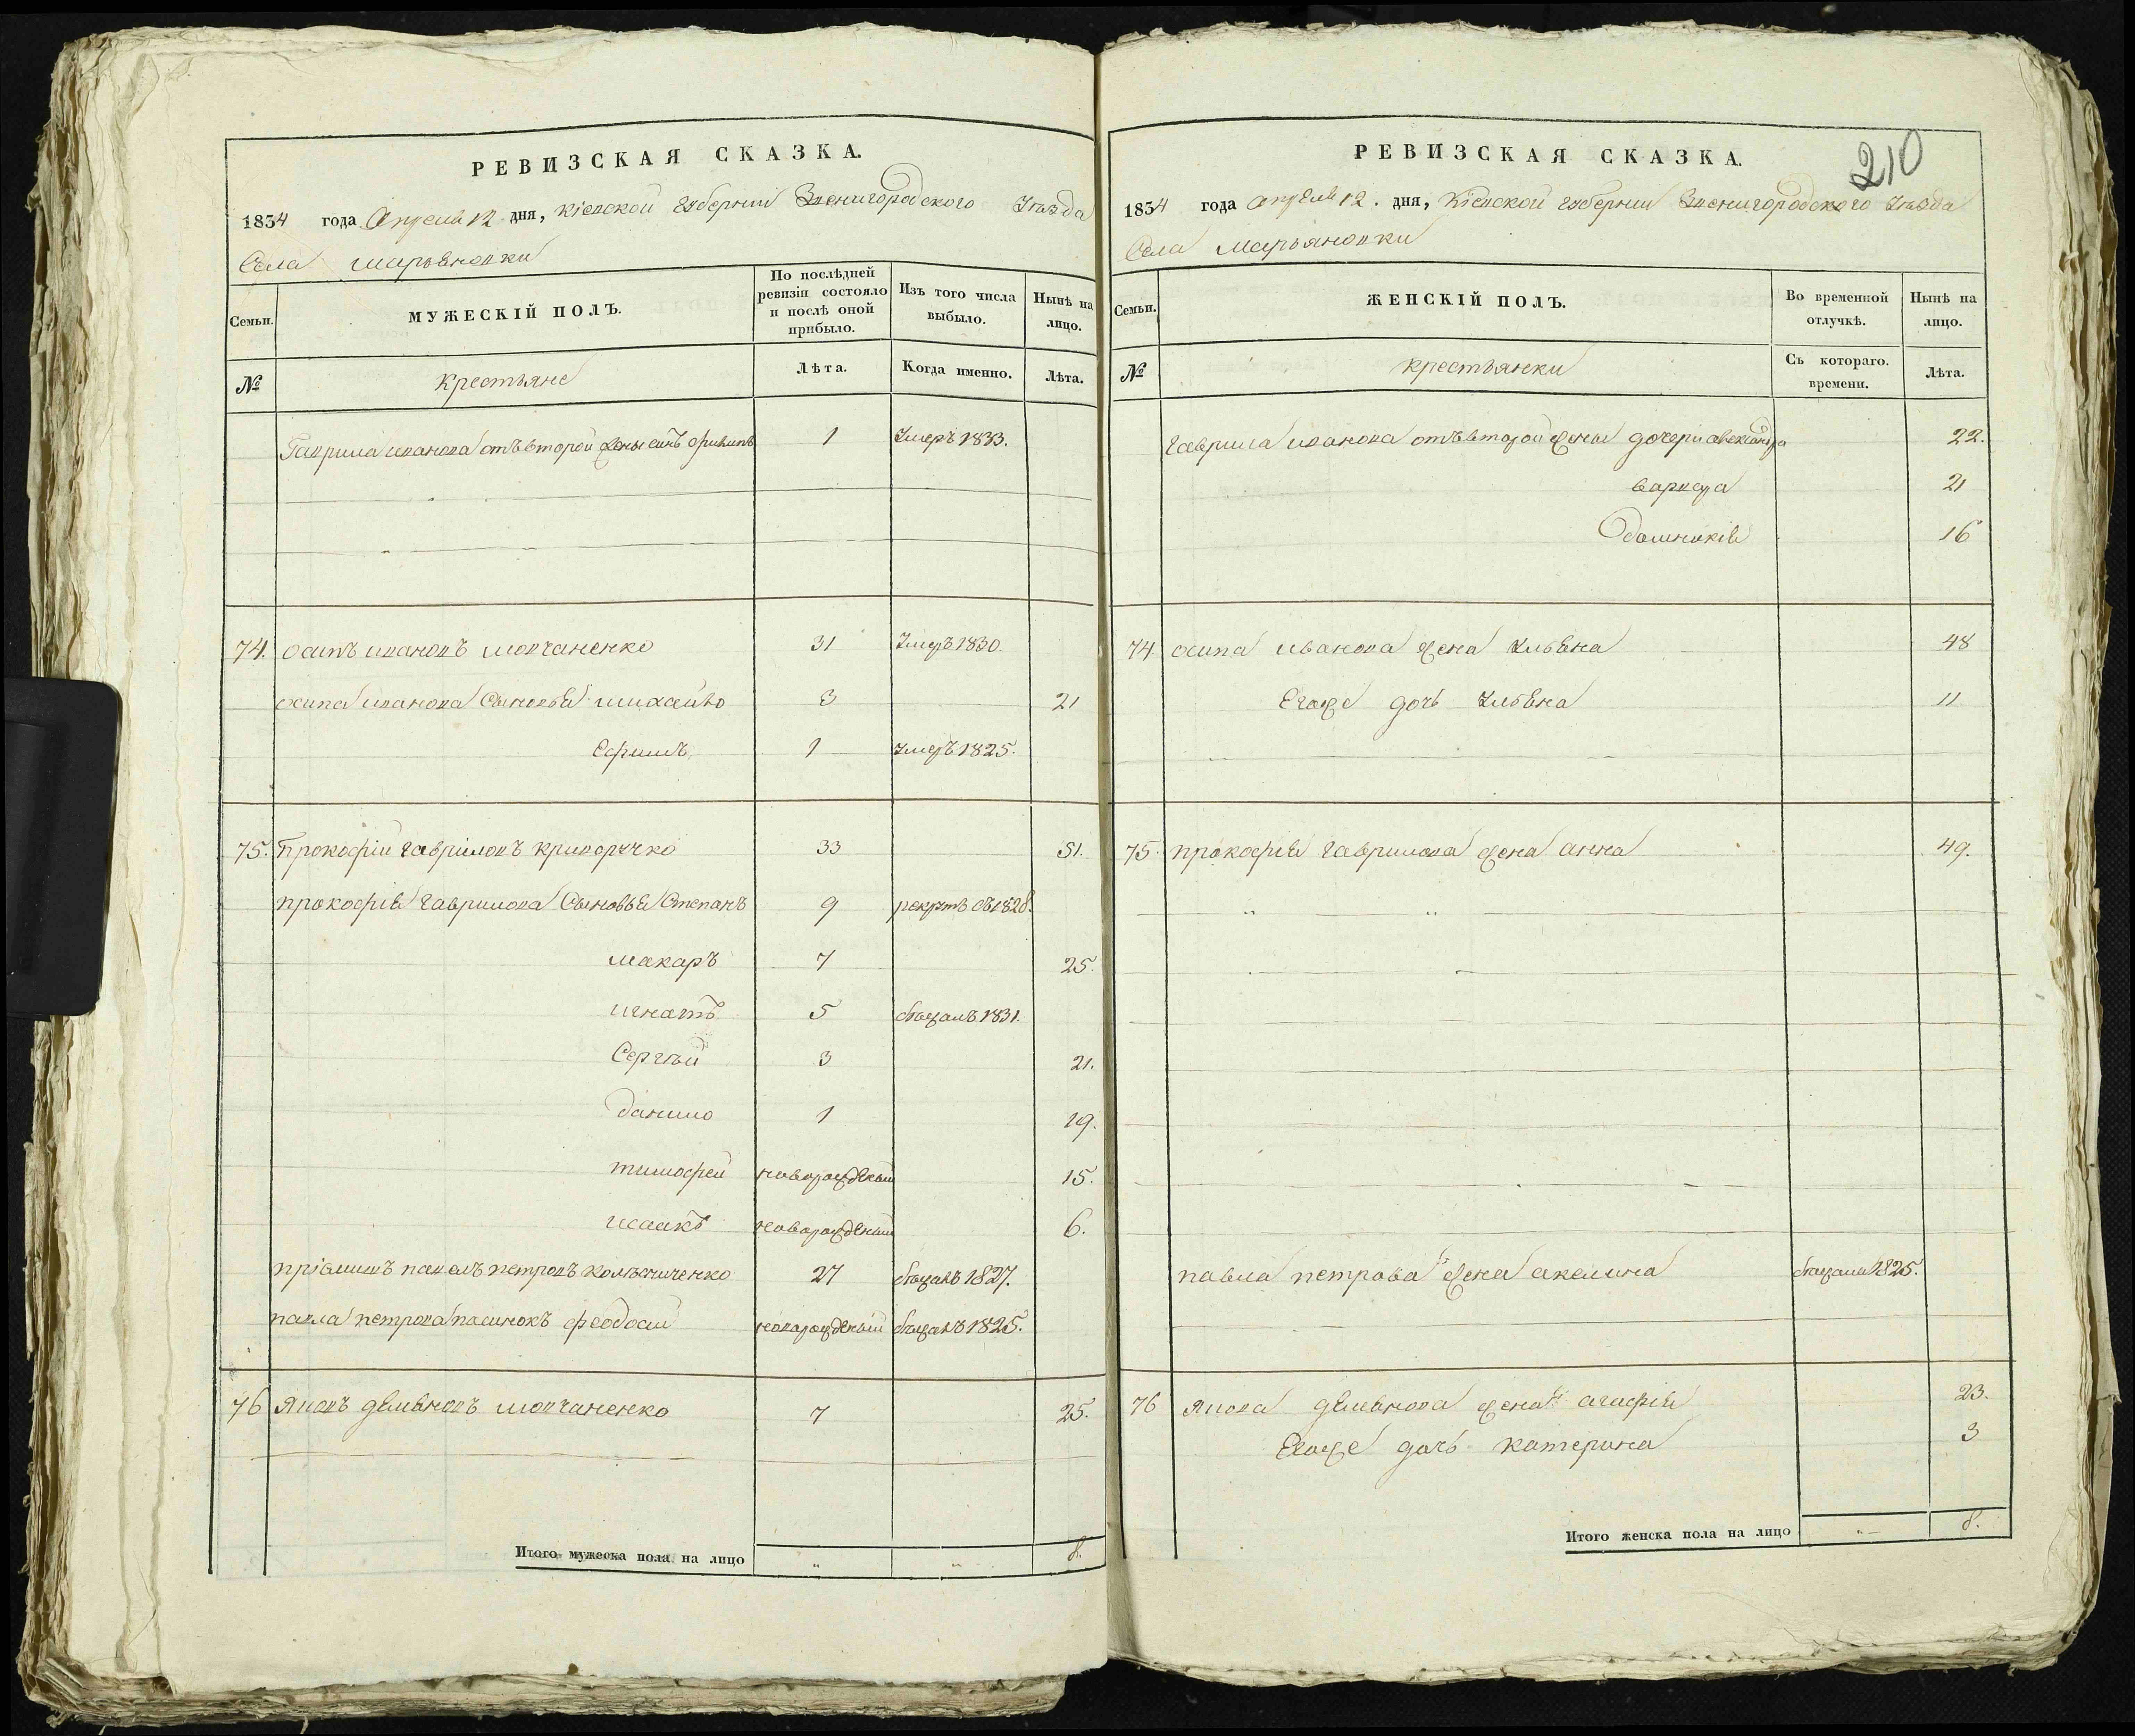 РЕВИЗСКАЯ СКАЗКА.
1834 года Апреля 12 дня, Кіевской Губерніи Звенигородского Уѣзда
Села Марьяновки
Семьи. МУЖЕСКІЙ ПОЛЪ. По послѣдней ревизіи состояло и послѣ оной прибыло. Изъ того числа выбыло. Нынѣ на лицо.
№ Крестьяне Лѣта. Когда именно. Лѣта.
Гаврила иванова отъ второй жены сынъ филипъ 1 Умеръ 1833.
74. осипъ ивановъ мовчаненко 31 Умеръ 1830.
осипа иванова Сыновья михайло 3 21
Ефимъ 1 Умеръ 1825.
75. Прокофій гавриловъ криворучко 33 51.
прокофія гаврилова Сыновья Степанъ 9 рекрутъ съ 1828.
макаръ 7 25.
игнатъ 5 бѣжалъ 1831.
Сергѣй 3 21.
данило 1 19.
тимофей новорожденый 15.
исаакъ новорожденый 6.
пріймикъ павелъ петровъ 27 бѣжалъ 1827.
павла петрова пасинокъ феодосій новорожденый бѣжалъ 1825.
76 Яковъ демяновъ мовчаненко 7 25.
Итого мужеска пола на лицо „ „ 8.
РЕВИЗСКАЯ СКАЗКА.
210
1834 года апреля 12. дня, Кіевской губерніи Звенигородского Уѣзда
Села Марьяновки
Семьи. ЖЕНСКІЙ ПОЛЪ. Во временной отлучкѣ. Нынѣ на лицо.
№ крестьянки Съ котораго. времени. Лѣта.
гаврила иванова отъ второй жены дочери александра 22.
варвара 21
домникія 16
74. осипа иванова жена Ульяна 48
Егоже дочь Ульяна 11
75. прокофія гаврилова жена анна 49.
„ „
павла петрова жена акелина бѣжала 1825.
76 Якова демянова жена агафія 23.
Егоже дочь катерина 3
Итого женска пола на лицо „ 8.